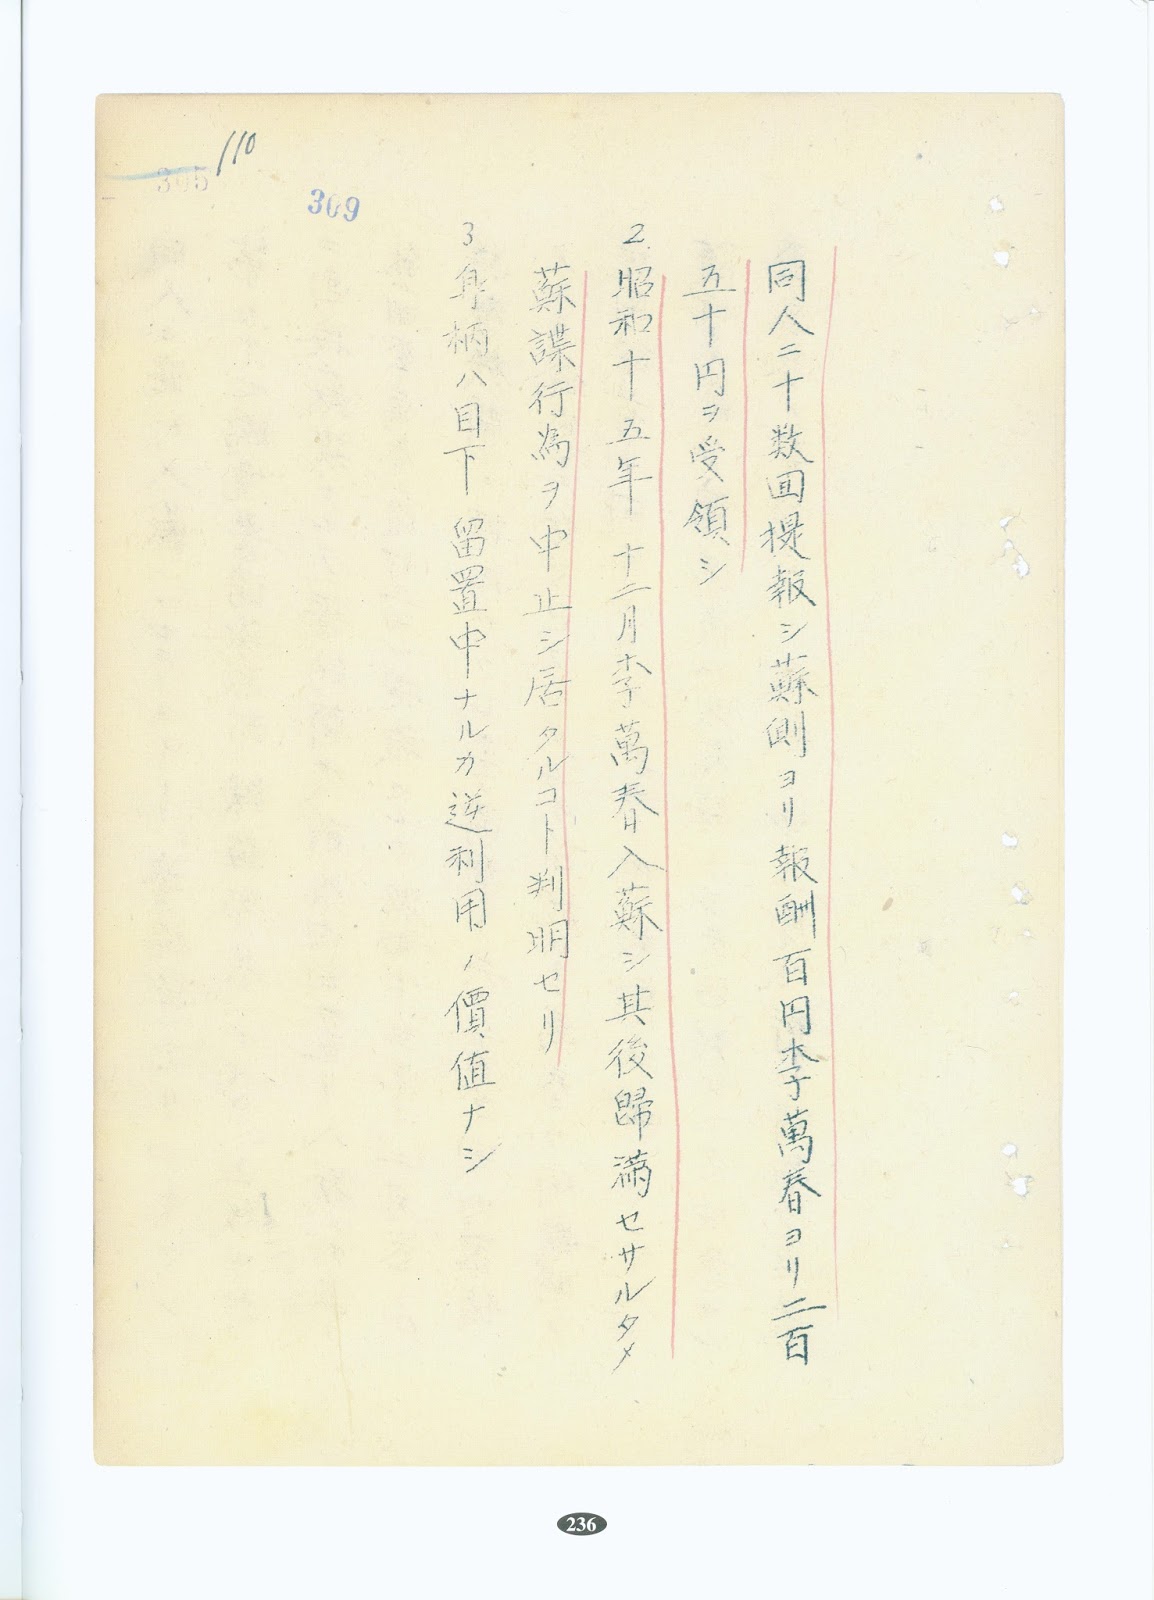 110
305
309
同人ニ十数囬提報シ蘇側ヨリ報酬百円李萬春ヨリ二百
五十円ヲ受領シ
2. 昭和十五年十二月李萬春入蘇シ其後歸満セサルタメ
蘇諜行為ヲ中止シ居タルコト判明セリ
3 身柄ハ目下留置中ナルカ逆利用ノ價値ナシ
236